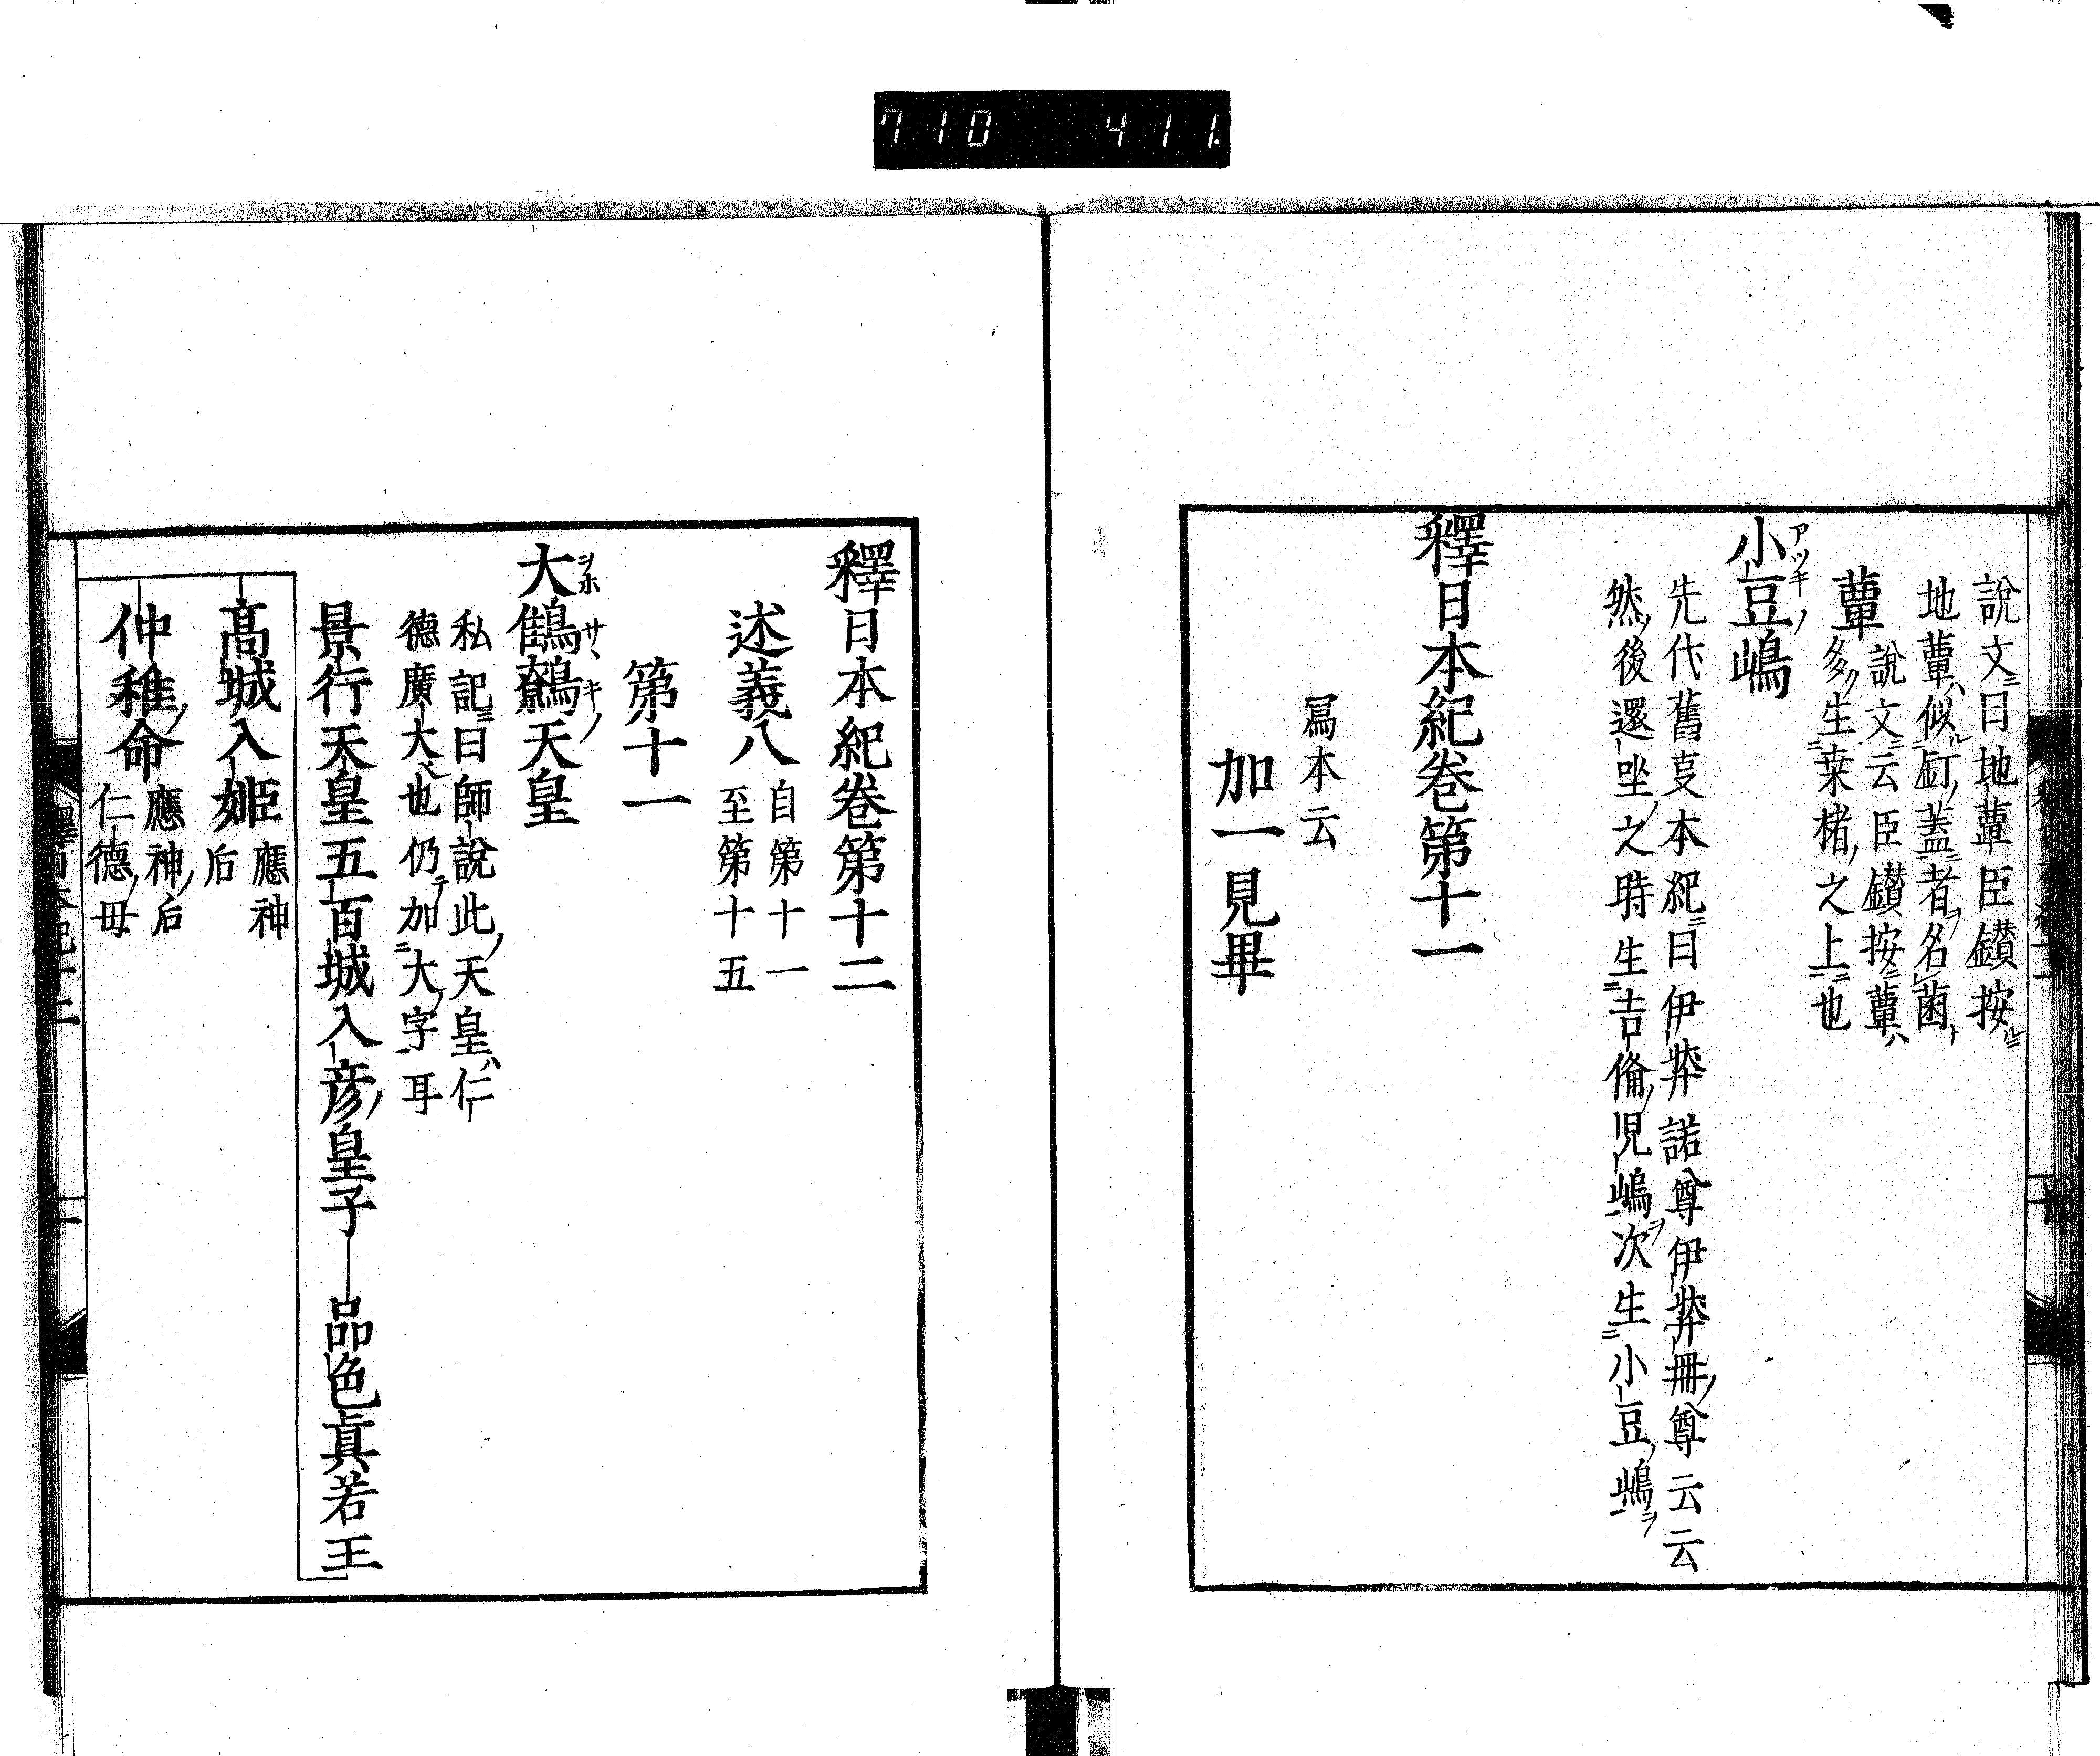 710 411
說文曰地蕈臣鐟按
地蕈似釘蓋者名菌
蕈說文云臣鐟按蕈
多生桒楮之上也
小豆嶋
アツキノ
先代舊㕝本紀曰伊弉諾尊伊弉冊尊云云
然後還坐之時生吉備児嶋次生小豆嶋
釋日本紀卷第十一
冩本云
加一見畢
釋日本紀卷第十二
述義八 自第十一
至第十五
第十一
大鷦鷯天皇
ヲホサヽキノ
私記曰師說此天皇仁
德廣大也仍加大字耳
景行天皇五百城入彦皇子――品色真若王
髙城入姬 應神
后
仲稚命 應神后
仁德母
釋日本紀十二 一